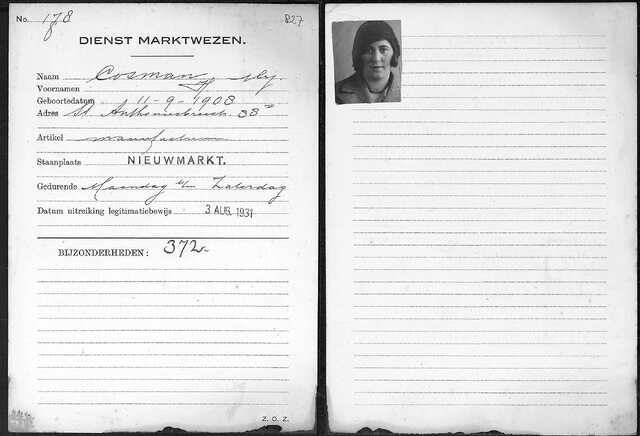 No. 178 827
DIENST MARKTWEZEN.
Naam Cosman,
Voornamen
Geboortedatum 11-9-1908
Adres St. Anthoniesbreestr. 38
Artikel manufacturen
Staanplaats NIEUWMARKT.
Gedurende Maandag t/m Zaterdag
Datum uitreiking legitimatiebewijs 3 AUG. 1931
BIJZONDERHEDEN: 372-
Z. O. Z.